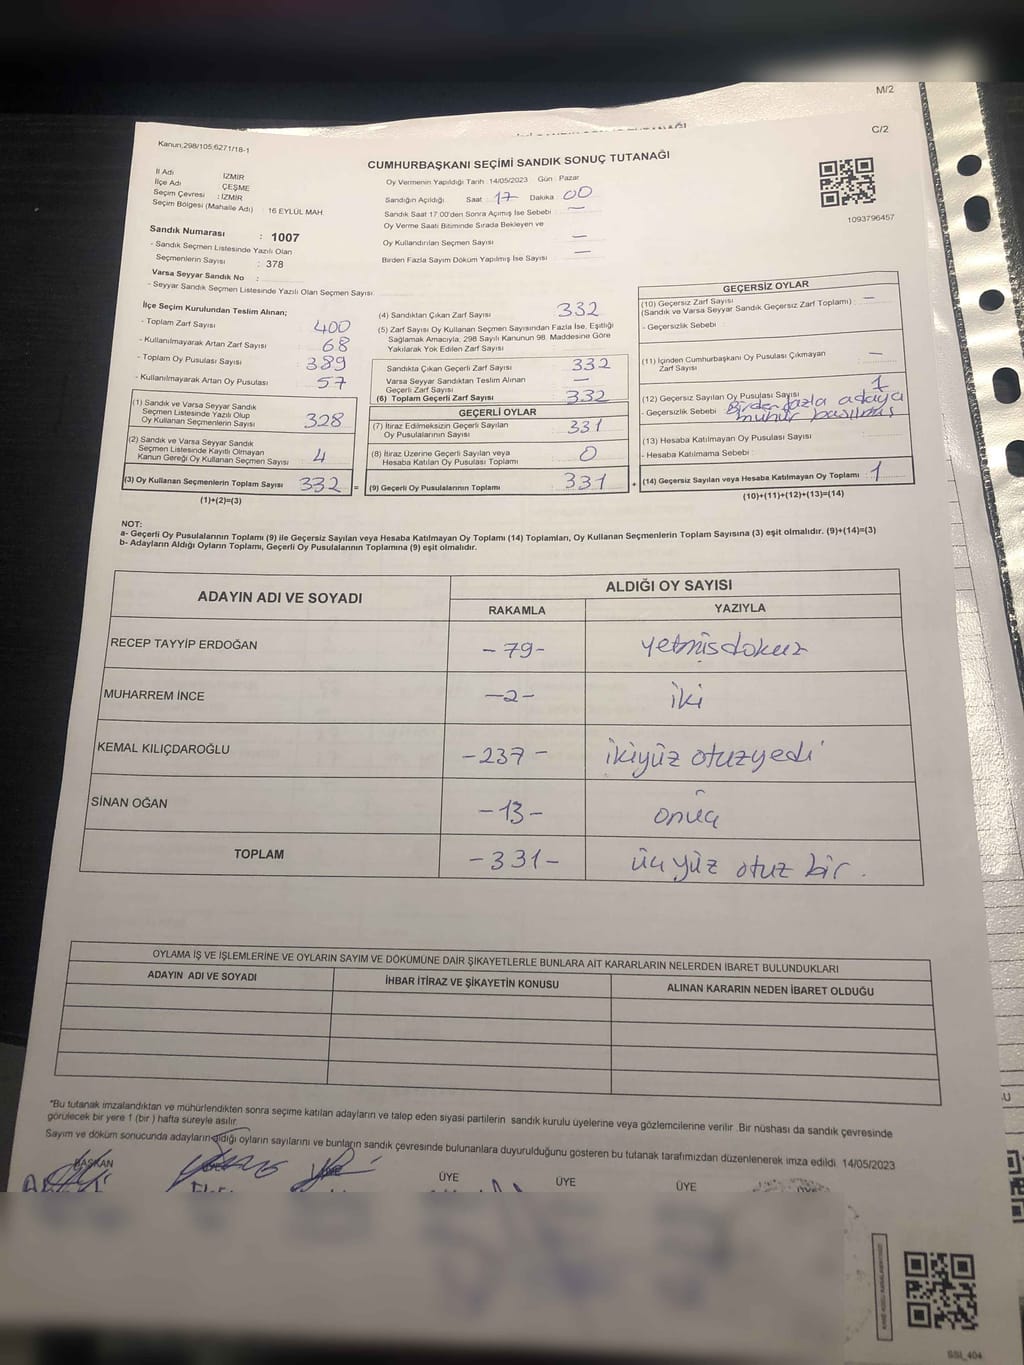 M/2
C/2
Kanun;298/105;6271/18-1
CUMHURBAŞKANI SEÇİMİ SANDIK SONUÇ TUTANAĞI
İl Adı : İZMİR
İlçe Adı : ÇEŞME
Seçim Çevresi : İZMİR
Seçim Bölgesi (Mahalle Adı) : 16 EYLÜL MAH.
Sandık Numarası : 1007
- Sandık Seçmen Listesinde Yazılı Olan
Seçmenlerin Sayısı : 378
Varsa Seyyar Sandık No :
- Seyyar Sandık Seçmen Listesinde Yazılı Olan Seçmen Sayısı:
Oy Vermenin Yapıldığı Tarih :14/05/2023 Gün : Pazar
Sandığın Açıldığı Saat : 17 Dakika 00
Sandık Saat 17.00'den Sonra Açımış İse Sebebi : —
Oy Verme Saati Bitiminde Sırada Bekleyen ve
Oy Kullandırılan Seçmen Sayısı —
Birden Fazla Sayım Döküm Yapılmış İse Sayısı —
1093796457
İlçe Seçim Kurulundan Teslim Alınan;
- Toplam Zarf Sayısı 400
- Kullanılmayarak Artan Zarf Sayısı 68
- Toplam Oy Pusulası Sayısı 389
- Kullanılmayarak Artan Oy Pusulası 57
(1) Sandık ve Varsa Seyyar Sandık
Seçmen Listesinde Yazılı Olup
Oy Kullanan Seçmenlerin Sayısı 328
(2) Sandık ve Varsa Seyyar Sandık
Seçmen Listesinde Kayıtlı Olmayan
Kanun Gereği Oy Kullanan Seçmen Sayısı 4
(3) Oy Kullanan Seçmenlerin Toplam Sayısı 332 =
(1)+(2)=(3)
(4) Sandıktan Çıkan Zarf Sayısı 332
(5) Zarf Sayısı Oy Kullanan Seçmen Sayısından Fazla İse, Eşitliği
Sağlamak Amacıyla; 298 Sayılı Kanunun 98. Maddesine Göre
Yakılarak Yok Edilen Zarf Sayısı
Sandıkta Çıkan Geçerli Zarf Sayısı 332
Varsa Seyyar Sandıktan Teslim Alınan
Geçerli Zarf Sayısı —
(6) Toplam Geçerli Zarf Sayısı 332
GEÇERLİ OYLAR
(7) İtiraz Edilmeksizin Geçerli Sayılan
Oy Pusulalarının Sayısı 331
(8) İtiraz Üzerine Geçerli Sayılan veya
Hesaba Katılan Oy Pusulası Toplamı 0
(9) Geçerli Oy Pusulalarının Toplamı 331 +
GEÇERSİZ OYLAR
(10) Geçersiz Zarf Sayısı
(Sandık ve Varsa Seyyar Sandık Geçersiz Zarf Toplamı) : —
- Geçersizlik Sebebi :
(11) İçinden Cumhurbaşkanı Oy Pusulası Çıkmayan
Zarf Sayısı : —
(12) Geçersiz Sayılan Oy Pusulası Sayısı : 1
- Geçersizlik Sebebi : Birden fazla adaya
mühür basılmış
(13) Hesaba Katılmayan Oy Pusulası Sayısı :
- Hesaba Katılmama Sebebi :
(14) Geçersiz Sayılan veya Hesaba Katılmayan Oy Toplamı : 1
(10)+(11)+(12)+(13)=(14)
NOT:
a- Geçerli Oy Pusulalarının Toplamı (9) ile Geçersiz Sayılan veya Hesaba Katılmayan Oy Toplamı (14) Toplamları, Oy Kullanan Seçmenlerin Toplam Sayısına (3) eşit olmalıdır. (9)+(14)=(3)
b- Adayların Aldığı Oyların Toplamı, Geçerli Oy Pusulalarının Toplamına (9) eşit olmalıdır.
ADAYIN ADI VE SOYADI
ALDIĞI OY SAYISI
RAKAMLA YAZIYLA
RECEP TAYYİP ERDOĞAN -79- yetmişdokuz
MUHARREM İNCE -2- iki
KEMAL KILIÇDAROĞLU -237- ikiyüz otuzyedi
SİNAN OĞAN -13- onüç
TOPLAM -331- üç yüz otuz bir.
OYLAMA İŞ VE İŞLEMLERİNE VE OYLARIN SAYIM VE DÖKÜMÜNE DAİR ŞİKAYETLERLE BUNLARA AİT KARARLARIN NELERDEN İBARET BULUNDUKLARI
ADAYIN ADI VE SOYADI İHBAR İTİRAZ VE ŞİKAYETİN KONUSU ALINAN KARARIN NEDEN İBARET OLDUĞU
*Bu tutanak imzalandıktan ve mühürlendikten sonra seçime katılan adayların ve talep eden siyasi partilerin sandık kurulu üyelerine veya gözlemcilerine verilir .Bir nüshası da sandık çevresinde
görülecek bir yere 1 (bir ) hafta süreyle asılır.
Sayım ve döküm sonucunda adayların aldığı oyların sayılarını ve bunların sandık çevresinde bulunanlara duyurulduğunu gösteren bu tutanak tarafımızdan düzenlenerek imza edildi. 14/05/2023
BAŞKAN ÜYE ÜYE ÜYE
SSI_404